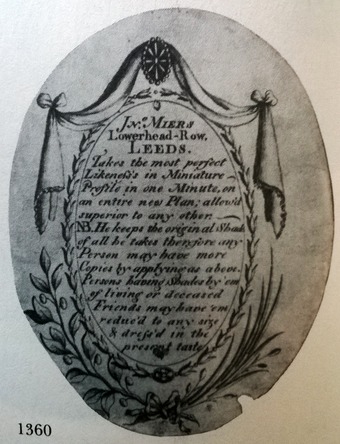 Jnº. MIERS
Lowerhead-Row,
LEEDS.
Takes the most perfect
Likeness's in Miniature
Profile in one Minute, on
an entire new Plan; allow'd
superior to any other.
NB. He keeps the original Shade
of all he takes therefore any
Person may have more
Copies by applying as above.
Persons having Shades by 'em
of living or deceased
Friends may have 'em
reduc'd to any size
& dress'd in the
present taste
1360